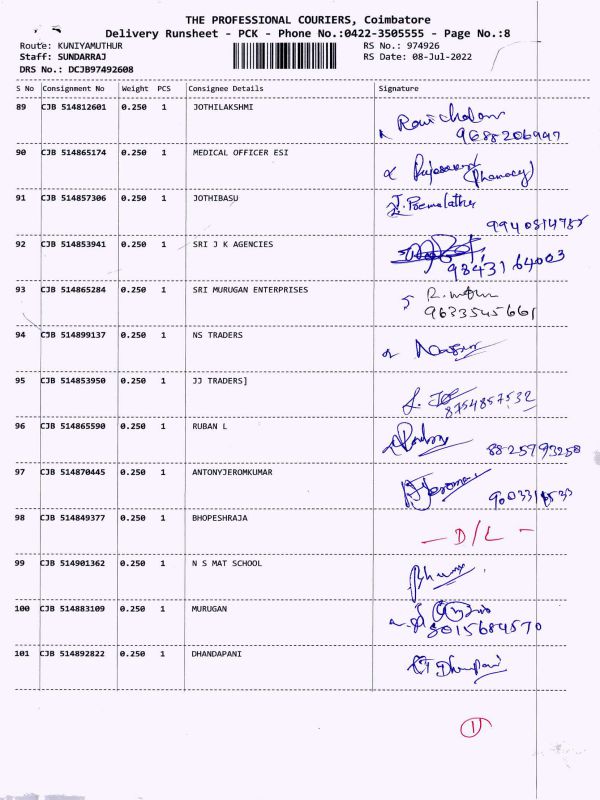 THE PROFESSIONAL COURIERS, Coimbatore
Delivery Runsheet - PCK - Phone No.:0422-3505555 - Page No.:8
Route: KUNIYAMUTHUR RS No.: 974926
Staff: SUNDARRAJ RS Date: 08-Jul-2022
DRS No.: DCJB97492608
S No Consignment No Weight PCS Consignee Details Signature
89 CJB 514812601 0.250 1 JOTHILAKSHMI
9688206997
90 CJB 514865174 0.250 1 MEDICAL OFFICER ESI
(Pharmacy)
91 CJB 514857306 0.250 1 JOTHIBASU J. Poemalatha
92 CJB 514853941 0.250 1 SRI J K AGENCIES
98431 64003
93 CJB 514865284 0.250 1 SRI MURUGAN ENTERPRISES
9633545661
94 CJB 514899137 0.250 1 NS TRADERS
95 CJB 514853950 0.250 1 JJ TRADERS]
8754857532
96 CJB 514865590 0.250 1 RUBAN L
8825793258
97 CJB 514870445 0.250 1 ANTONYJEROMKUMAR
98 CJB 514849377 0.250 1 BHOPESHRAJA
- D/L -
99 CJB 514901362 0.250 1 N S MAT SCHOOL
100 CJB 514883109 0.250 1 MURUGAN
8015684570
101 CJB 514892822 0.250 1 DHANDAPANI
1